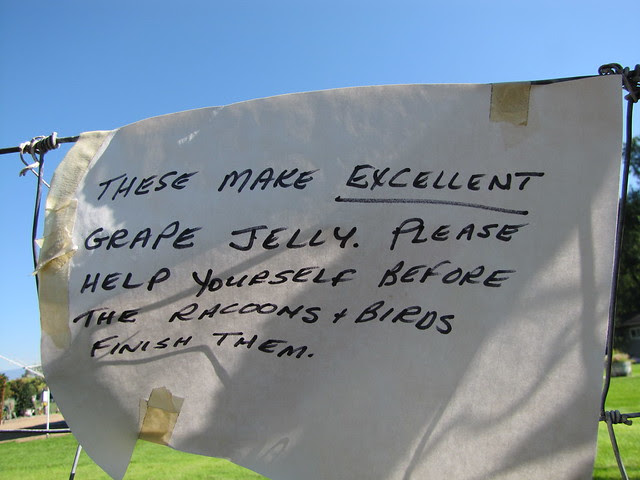 THESE MAKE EXCELLENT
GRAPE JELLY. PLEASE
HELP YOURSELF BEFORE
THE RACOONS + BIRDS
FINISH THEM.